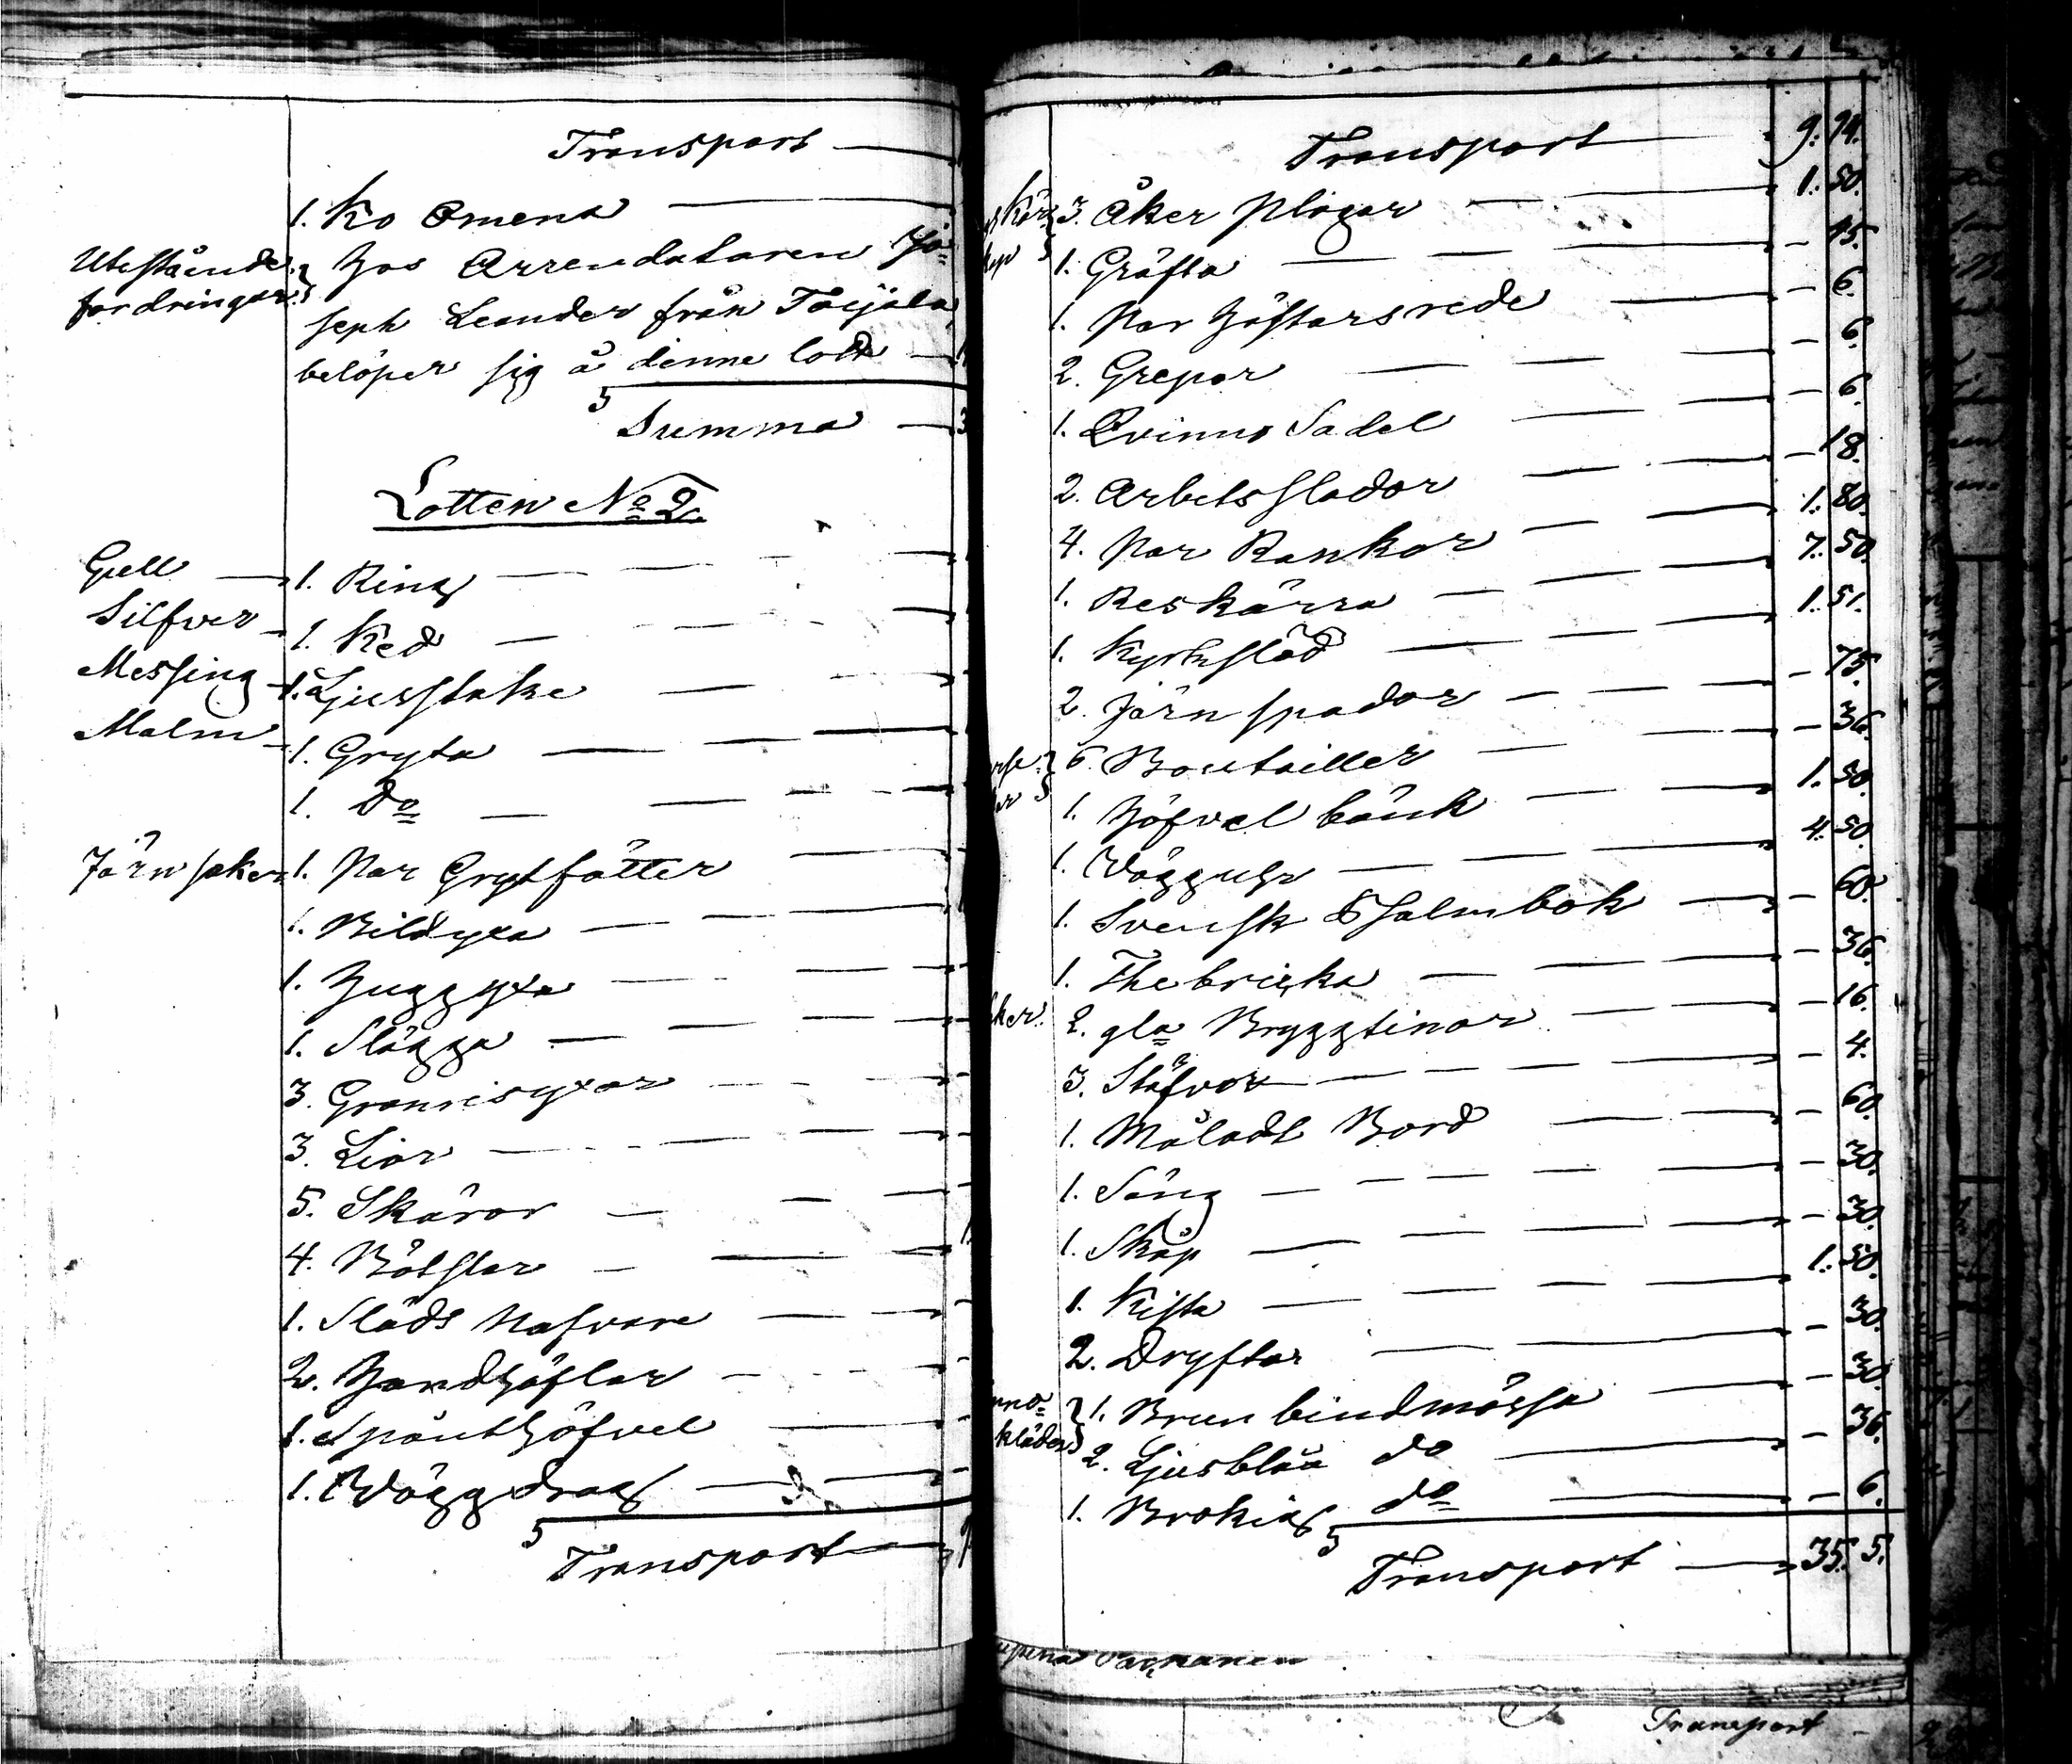 Transport
1. Ko Omena
Utestående fordringar. Hos Arrendataren Jo=
seph Leander från
belöper sig å denne lott
Summa
Lotten No 2.
Gull 1. Ring
Silfver 1. Ked
Messing 1. Ljusstake
Malm 1. Gryta
1. Do
Järnsaker 1. Par Grytfötter
1. Bildyxa
1. Huggyxa
1. Slägga
3. Granrisyxor
3. Liar
5. Skäror
4. Båtslar
1. Släds Nafvare
2. Handhöflar
1. Sponthöfvel
1. Vägg drag
Transport
Transport 9. 74.
3. Åker Plogar 1. 50.
1. Gräfta - 15.
1. Par Höftarsrede - 6.
2. Grepar - 6.
1. Qvinno Sadel - 6.
2. Arbetsslädor - 18.
4. Par Rankor 1. 80.
1. Reskärra 7. 50.
1. Kyrkslad 1. 51.
2. Järnspador - 75.
6. Boutailler - 36.
1. Höfvel bänk 1. 50.
1. Vägguhr 4. 50.
1. Svensk Psalmbok - 60.
1. Thebricka - 36.
ker. 2. gla Bryggtinor - 16.
3. Stäfvor - 4.
1. Måladt Bord - 60.
1. Säng - 30.
1. Skåp - 30.
1. Kista 1. 50.
2. Dryftar - 30.
kläder 1. Brun bindmössa - 30.
2. Ljusblåa do - 36.
1. Brokig do - 6.
Transport 35. 5.
Transport